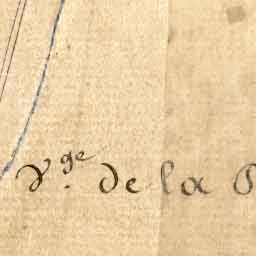 V.ge de la